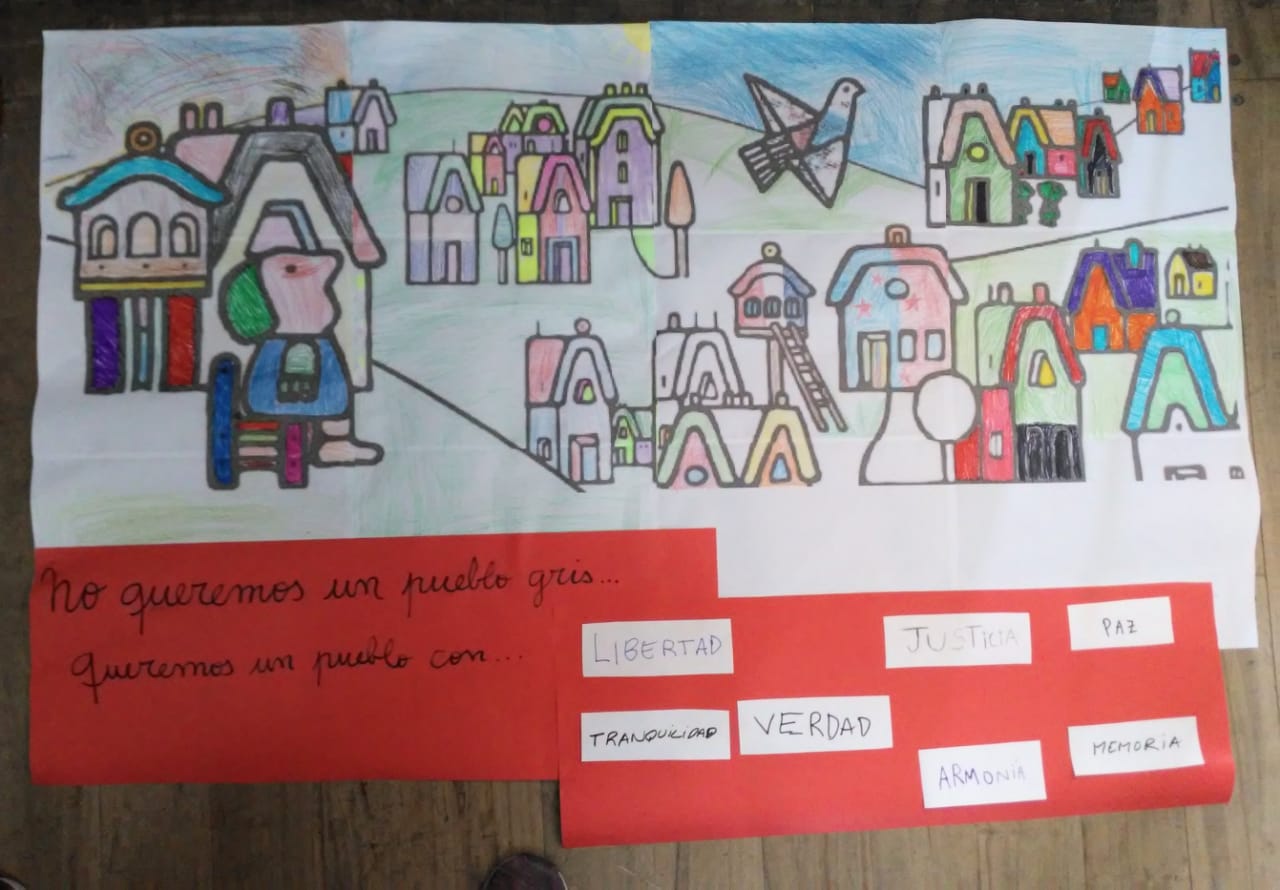 No queremos un pueblo gris...
queremos un pueblo con...
LIBERTAD
JUSTICIA
PAZ
TRANQUILIDAD
VERDAD
ARMONÍA
MEMORIA